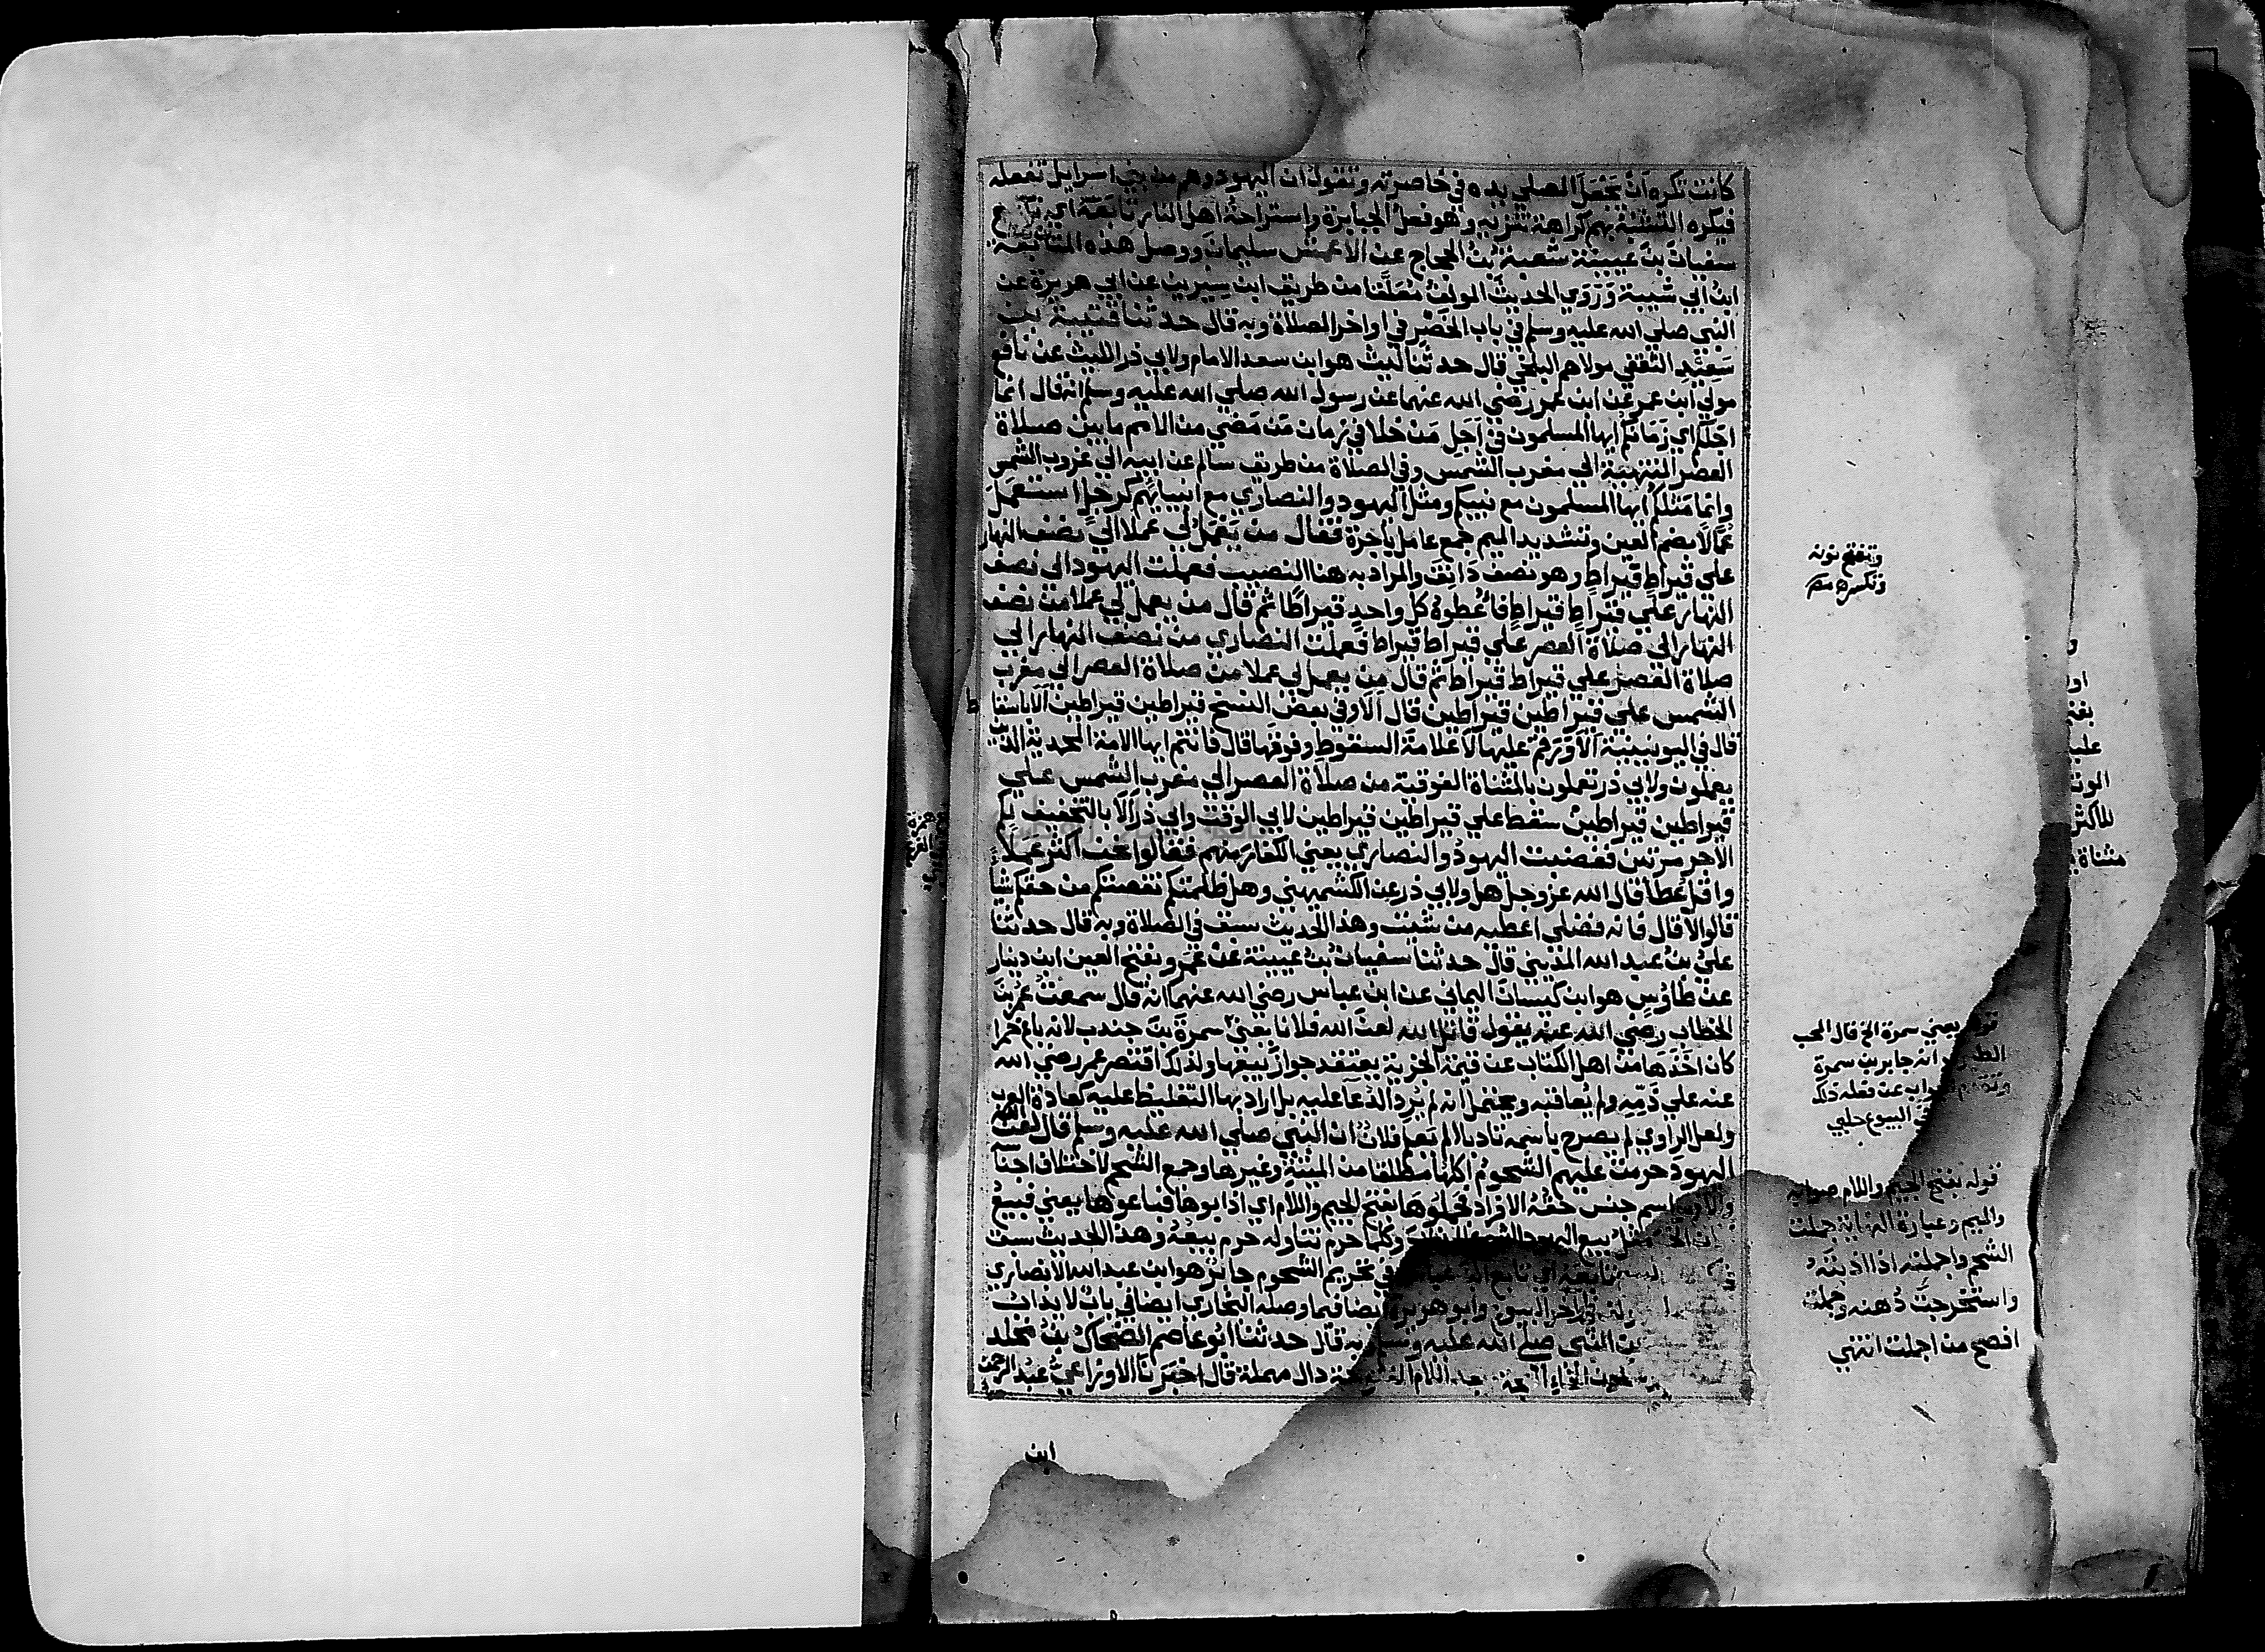 كانت تكره ان يجعل المصلي يده في خاصرته وتقول ان اليهود وهم من بني اسرايل تفعله
فيكره التشبه بهم كراهة تنزيه وهو فعل الجبابرة واستراحة اهل النار تابعه اي تابع
سفيان بن عيينة شعبة بن الحجاج عن الاعمش سليمان ووصل هذه المتابعة
ابن ابي شيبة وروي الحديث المولف معلقا من طريق ابن سيرين عن ابي هريرة عن
النبي صلي الله عليه وسلم في باب الخصر في اواخر الصلاة وبه قال حدثنا قتيبة بن
سعيد الثقفي مولاهم البلخي قال حدثنا ليث هو ابن سعد الامام ولابي ذر الليث عن نافع
مولي ابن عمر عن ابن عمر رضي الله عنهما عن رسول الله صلي الله عليه وسلم انه قال انما
اجلكم اي زمانكم ايها المسلمون في اجل من خلا في زمان من مضي من الامم ما بين صلاة
العصر المنتهية الي مغرب الشمس وفي الصلاة من طريق سالم عن ابيه الي غروب الشمس
وانما مثلكم ايها المسلمون مع نبيكم ومثل اليهود والنصاري مع انبيائهم كرجل استعمل
عمالا بضم العين وتشديد الميم جمع عامل باجرة فقال من يعمل لي عملا الي نصف النهار
علي قيراط قيراط وهو نصف دانق والمراد به هنا النصيب فعملت اليهود الي نصف
النهار علي قيراط قيراط فاعطوا كل واحد قيراطا ثم قال من يعمل لي عملا من نصف
النهار الي صلاة العصر علي قيراط قيراط فعملت النصاري من نصف النهار الي
صلاة العصر علي قيراط قيراط ثم قال من يعمل لي عملا من صلاة العصر الي مغرب
الشمس علي قيراطين قيراطين قال الا وفي بعض النسخ قيراطين قيراطين الا باسقاط
قال في اليونينية الا ورقم عليها لا علامة السقوط وفوقها قال فانتم ايها الامة المحمدية الذين
يعملون ولابي ذر تعملون بالمثناة الفوقية من صلاة العصر الي مغرب الشمس علي
قيراطين قيراطين سقط علي قيراطين قيراطين لابي الوقت وابي ذر الا بالتخفيف لكم
الاجر مرتين فغضبت اليهود والنصاري يعني الكفار منهم فقالوا نحن اكثر عملا
واقل عطا قال الله عز وجل هل ولابي ذر عن الكشميهني وهل ظلمتكم نقصتكم من حقكم شيا
قالوا لا قال فانه فضلي اعطيه من شئت وهذا الحديث سبق في الصلاة وبه قال حدثنا
علي بن عبد الله المديني قال حدثنا سفيان بن عيينة عن عمرو بفتح العين ابن دينار
عن طاوس هو ابن كيسان اليماني عن ابن عباس رضي الله عنهما انه قال سمعت عمر بن
الخطاب رضي الله عنه يقول قاتل الله لعن الله فلانا يعني سمرة بن جندب لانه باع خمرا
كان اخذها من اهل الكتاب عن قيمة الجزية يعتقد جواز بيعها ولذلك اقتصر عمر رضي الله
عنه علي ذمه ولم يعاقبه ويحتمل انه لم يرد الدعا عليه بل اراد بها التغليظ عليه كعادة العرب
ولعل الراوي لم يصرح باسمه تادبا الم يعلم فلان ان النبي صلي الله عليه وسلم قال لعن الله
اليهود حرمت عليهم الشحوم اكلها مطلقا من الميتة وغيرها وجمع الشحم لاختلاف اجناسه
والا اسم جنس حقه الافراد فجملوها بفتح الجيم واللام اي اذابوها فباعوها يعني فبيع
مثل بيع اليهود وكلما حرم تناوله حرم بيعه وهذا الحديث سبق
تابعه اي تابع في تحريم الشحوم جابر هو ابن عبد الله الانصاري
وابو هريرة ايضا فيما وصله البخاري ايضا في باب لا يذاب
عن النبي صلي الله عليه وسلم وبه قال حدثنا ابو عاصم الضحاك بن مخلد
اللام دال مهملة قال اخبرنا الاوزاعي عبد الرحمن
ابن
وتفتح نونه
وتكسر
يعني سمرة الخ قال المحب
انه جابر بن سمرة
عن فعله ذلك
البيوع حلبي
قوله بفتح الجيم واللام صوابه
والميم وعبارة النهاية جملت
الشحم واجملته اذا اذبته
واستخرجت دهنه وجملت
افصح من اجملت انتهي